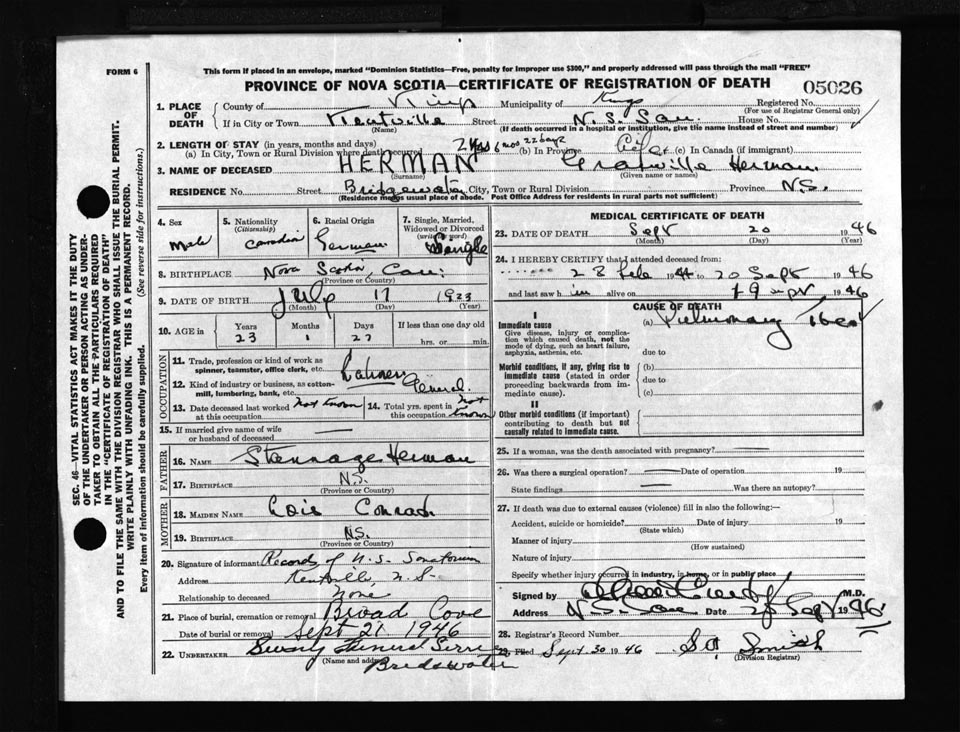 FORM 6
This form if placed in an envelope, marked "Dominion Statistics—Free, penalty for improper use $300," and properly addressed will pass through the mail "FREE"
PROVINCE OF NOVA SCOTIA—CERTIFICATE OF REGISTRATION OF DEATH
05026
1. PLACE OF DEATH County of Kings Municipality of Kings Registered No.
(For use of Registrar General only)
If in City or Town Kentville Street N. S. San. House No.
(Name) (If death occurred in a hospital or institution, give its name instead of street and number)
2. LENGTH OF STAY (in years, months and days)
(a) In City, Town or Rural Division where death occurred 2 yrs 6 mos 22 days (b) In Province Life (c) In Canada (if immigrant)
3. NAME OF DECEASED HERMAN Granville Herman
(Surname) (Given name or names)
RESIDENCE No. Street Bridgewater City, Town or Rural Division Province N.S.
(Residence means usual place of abode. Post Office Address for residents in rural parts not sufficient)
4. Sex Male
5. Nationality (Citizenship) Canadian
6. Racial Origin German
7. Single, Married, Widowed or Divorced (write word) Single
8. BIRTHPLACE Nova Scotia, Can.
(Province or Country)
9. DATE OF BIRTH July 17 1923
(Month) (Day) (Year)
10. AGE in Years Months Days If less than one day old
23 1 27 hrs. or min.
OCCUPATION
11. Trade, profession or kind of work as spinner, teamster, office clerk, etc. Laborer
12. Kind of industry or business, as cotton-mill, lumbering, bank, etc. General
13. Date deceased last worked at this occupation Not Known
14. Total yrs. spent in this occupation Not Known
15. If married give name of wife or husband of deceased —
FATHER
16. NAME Stannage Herman
17. BIRTHPLACE N.S.
(Province or Country)
MOTHER
18. MAIDEN NAME Lois Conrad
19. BIRTHPLACE NS.
(Province or Country)
20. Signature of informant Records of N.S. Sanatorium
Address Kentville, N.S.
Relationship to deceased None
21. Place of burial, cremation or removal Broad Cove
Date of burial or removal Sept 21 1946
22. UNDERTAKER Sweeny Funeral Service
(Name and address) Bridgewater
MEDICAL CERTIFICATE OF DEATH
23. DATE OF DEATH Sept 20 1946
(Month) (Day) (Year)
24. I HEREBY CERTIFY that I attended deceased from:
28 Feb 1944 to 20 Sept 1946
and last saw him alive on 19 Sept 1946
CAUSE OF DEATH
I
Immediate cause
Give disease, injury or complication which caused death, not the mode of dying, such as heart failure, asphyxia, asthenia, etc.
(a) Pulmonary Tbc
due to
Morbid conditions, if any, giving rise to immediate cause (stated in order proceeding backwards from immediate cause).
(b)
due to
(c)
II
Other morbid conditions (if important) contributing to death but not causally related to immediate cause.
25. If a woman, was the death associated with pregnancy? —
26. Was there a surgical operation? — Date of operation 19
State findings — Was there an autopsy?
27. If death was due to external causes (violence) fill in also the following:—
Accident, suicide or homicide? Date of injury 19
(State which)
Manner of injury
(How sustained)
Nature of injury
Specify whether injury occurred in industry, in home, or in public place
Signed by M.D.
Address N.S. San Date Sept 1946
28. Registrar's Record Number
29. Filed Sept. 30 1946 Smith
(Division Registrar)
SEC. 46—VITAL STATISTICS ACT MAKES IT THE DUTY OF THE UNDERTAKER OR PERSON ACTING AS UNDERTAKER TO OBTAIN ALL THE PARTICULARS REQUIRED IN THE "CERTIFICATE OF REGISTRATION OF DEATH"
AND TO FILE THE SAME WITH THE DIVISION REGISTRAR WHO SHALL ISSUE THE BURIAL PERMIT.
WRITE PLAINLY WITH UNFADING INK. THIS IS A PERMANENT RECORD.
Every item of information should be carefully supplied. (See reverse side for instructions.)